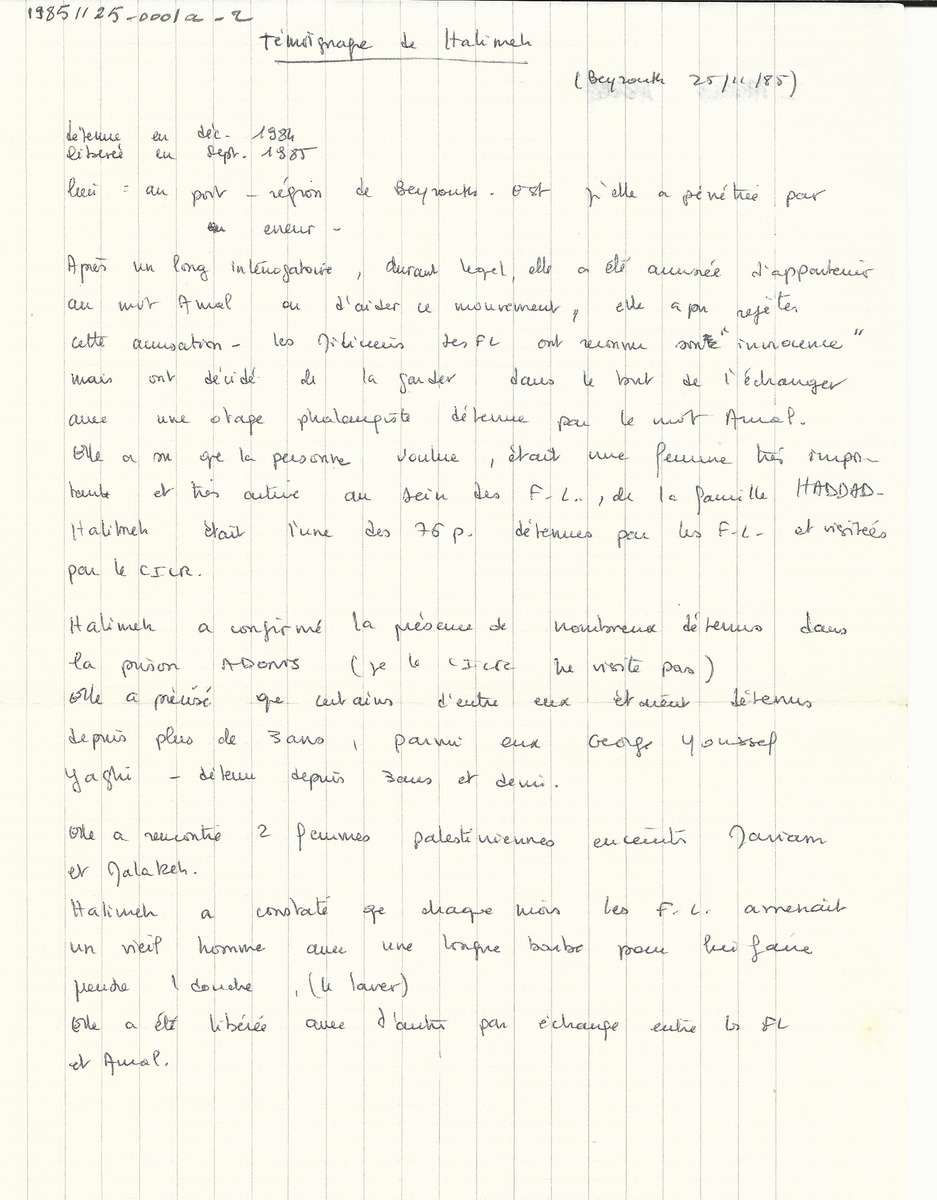 19851125-0001a-2
Témoignage de Halimeh
(Beyrouth 25/11/85)
détenue en déc. 1984
libérée en sept. 1985
lieu : au port - région de Beyrouth-Est qu'elle a pénétrée par
erreur -
Après un long interrogatoire, durant leqel, elle a été accusée d'appartenir
au mvt Amal ou d'aider ce mouvement, elle a pu rejeter
cette accusation - les Miliciens des FL ont reconnu son "innocence"
mais ont décidé de la garder dans le but de l'échanger
avec une otage phalangiste détenue par le mvt Amal.
Elle a su qe la personne voulue, était une femme très impor-
tante et très active au sein des F.L., de la famille HADDAD-
Halimeh était l'une des 76 p. détenues par les F.L. et visitées
par le CICR.
Halimeh a confirmé la présence de nombreux détenus dans
la prison ADONIS (qe le CICR ne visite pas)
Elle a précisé qe certains d'entre eux étaient détenus
depuis plus de 3 ans, parmi eux George Youssef
Yaghi - détenu depuis 3 ans et demi.
Elle a rencontré 2 femmes palestiniennes enceintes Mariam
et Malakeh.
Halimeh a constaté qe chaque mois les F.L. amenait
un vieil homme avec une longue barbe pour lui faire
prendre 1 douche, (le laver)
Elle a été libérée avec d'autres par échange entre les FL
et Amal.